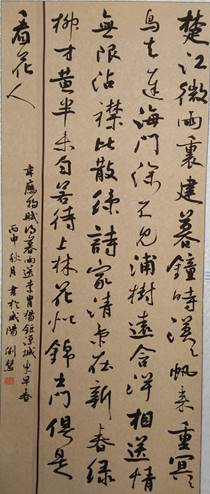 楚江微雨裏建暮鐘時漠〻帆來重冥
鳥去遲海門深不見浦樹遠含滋相送情
無限沾襟比散絲詩家清景在新春綠
柳才黄半未勻若待上林花似錦出門俱是
看花人
韋應物賦得暮雨送李胄楊巨源城東早春
丙申秋月書於咸陽